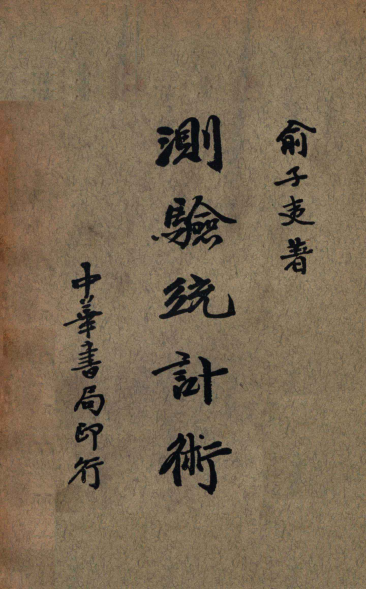 俞子夷著
測驗統計術
中華書局印行